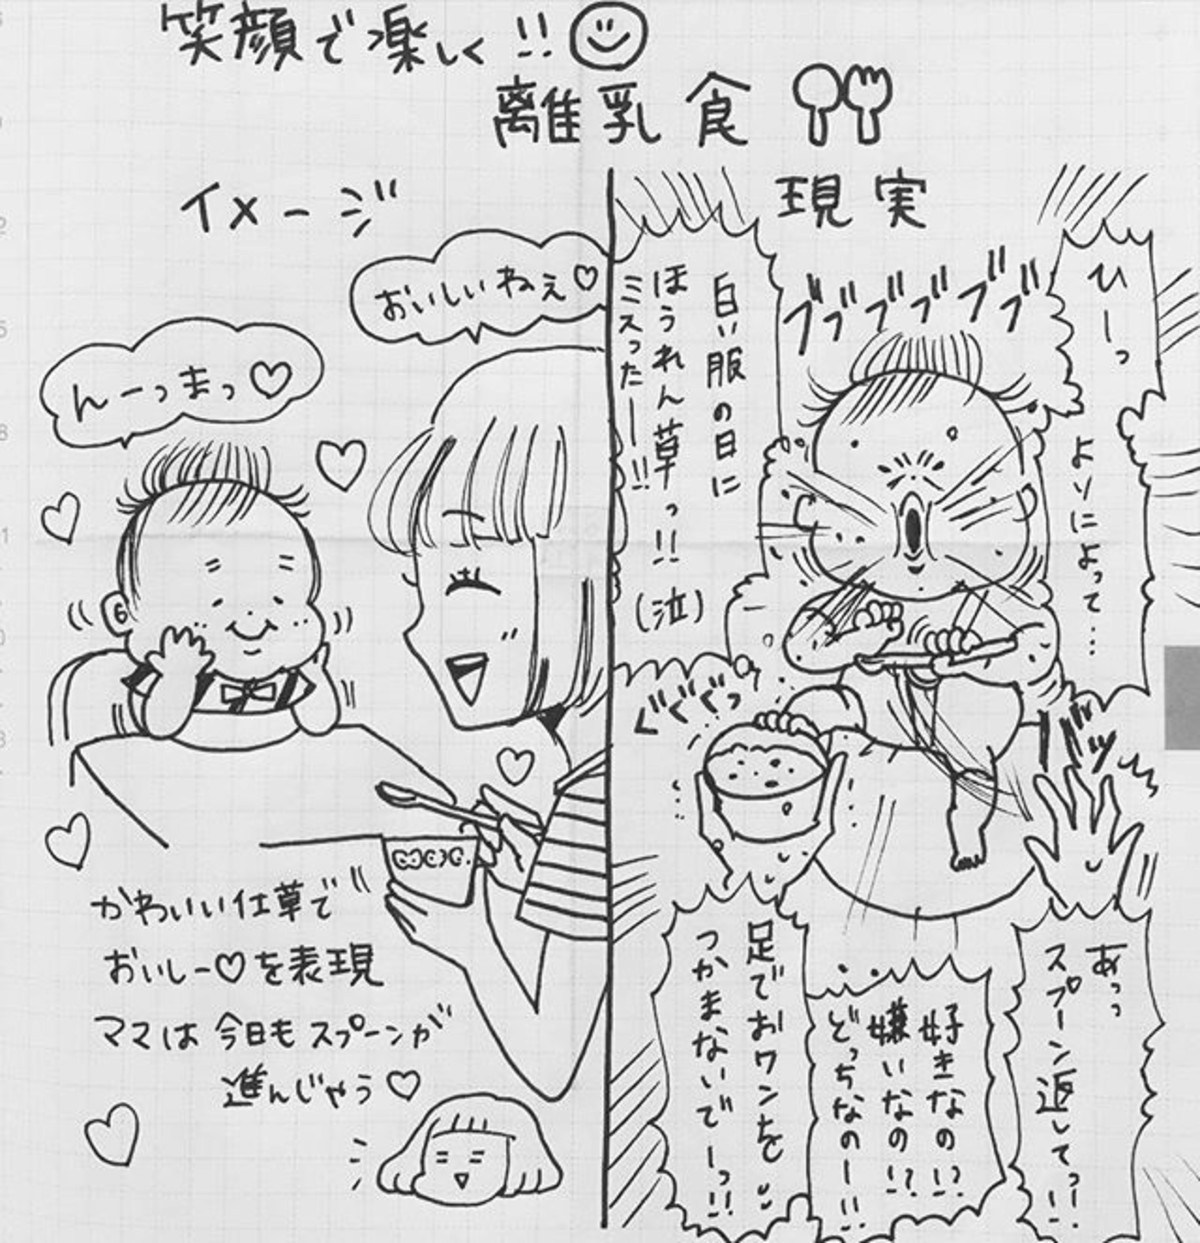 笑顔で楽しく!!
離乳食
イメージ
おいしいねぇ♡
んーっまっ♡
かわいい仕草で
おいしー♡を表現
ママは今日もスプーンが
進んじゃう♡
現実
ひーっ
よりによって…
白い服の日に
ほうれん草っ!!
ミスったー!!
(泣)
ブブブブブブ
ぐぐぐっ
ガッ
あっっ
スプーン返してっー!!
好きなの!?
嫌いなの!?
どっちなのー!!
足でおワンを
つかまないでーっ!!